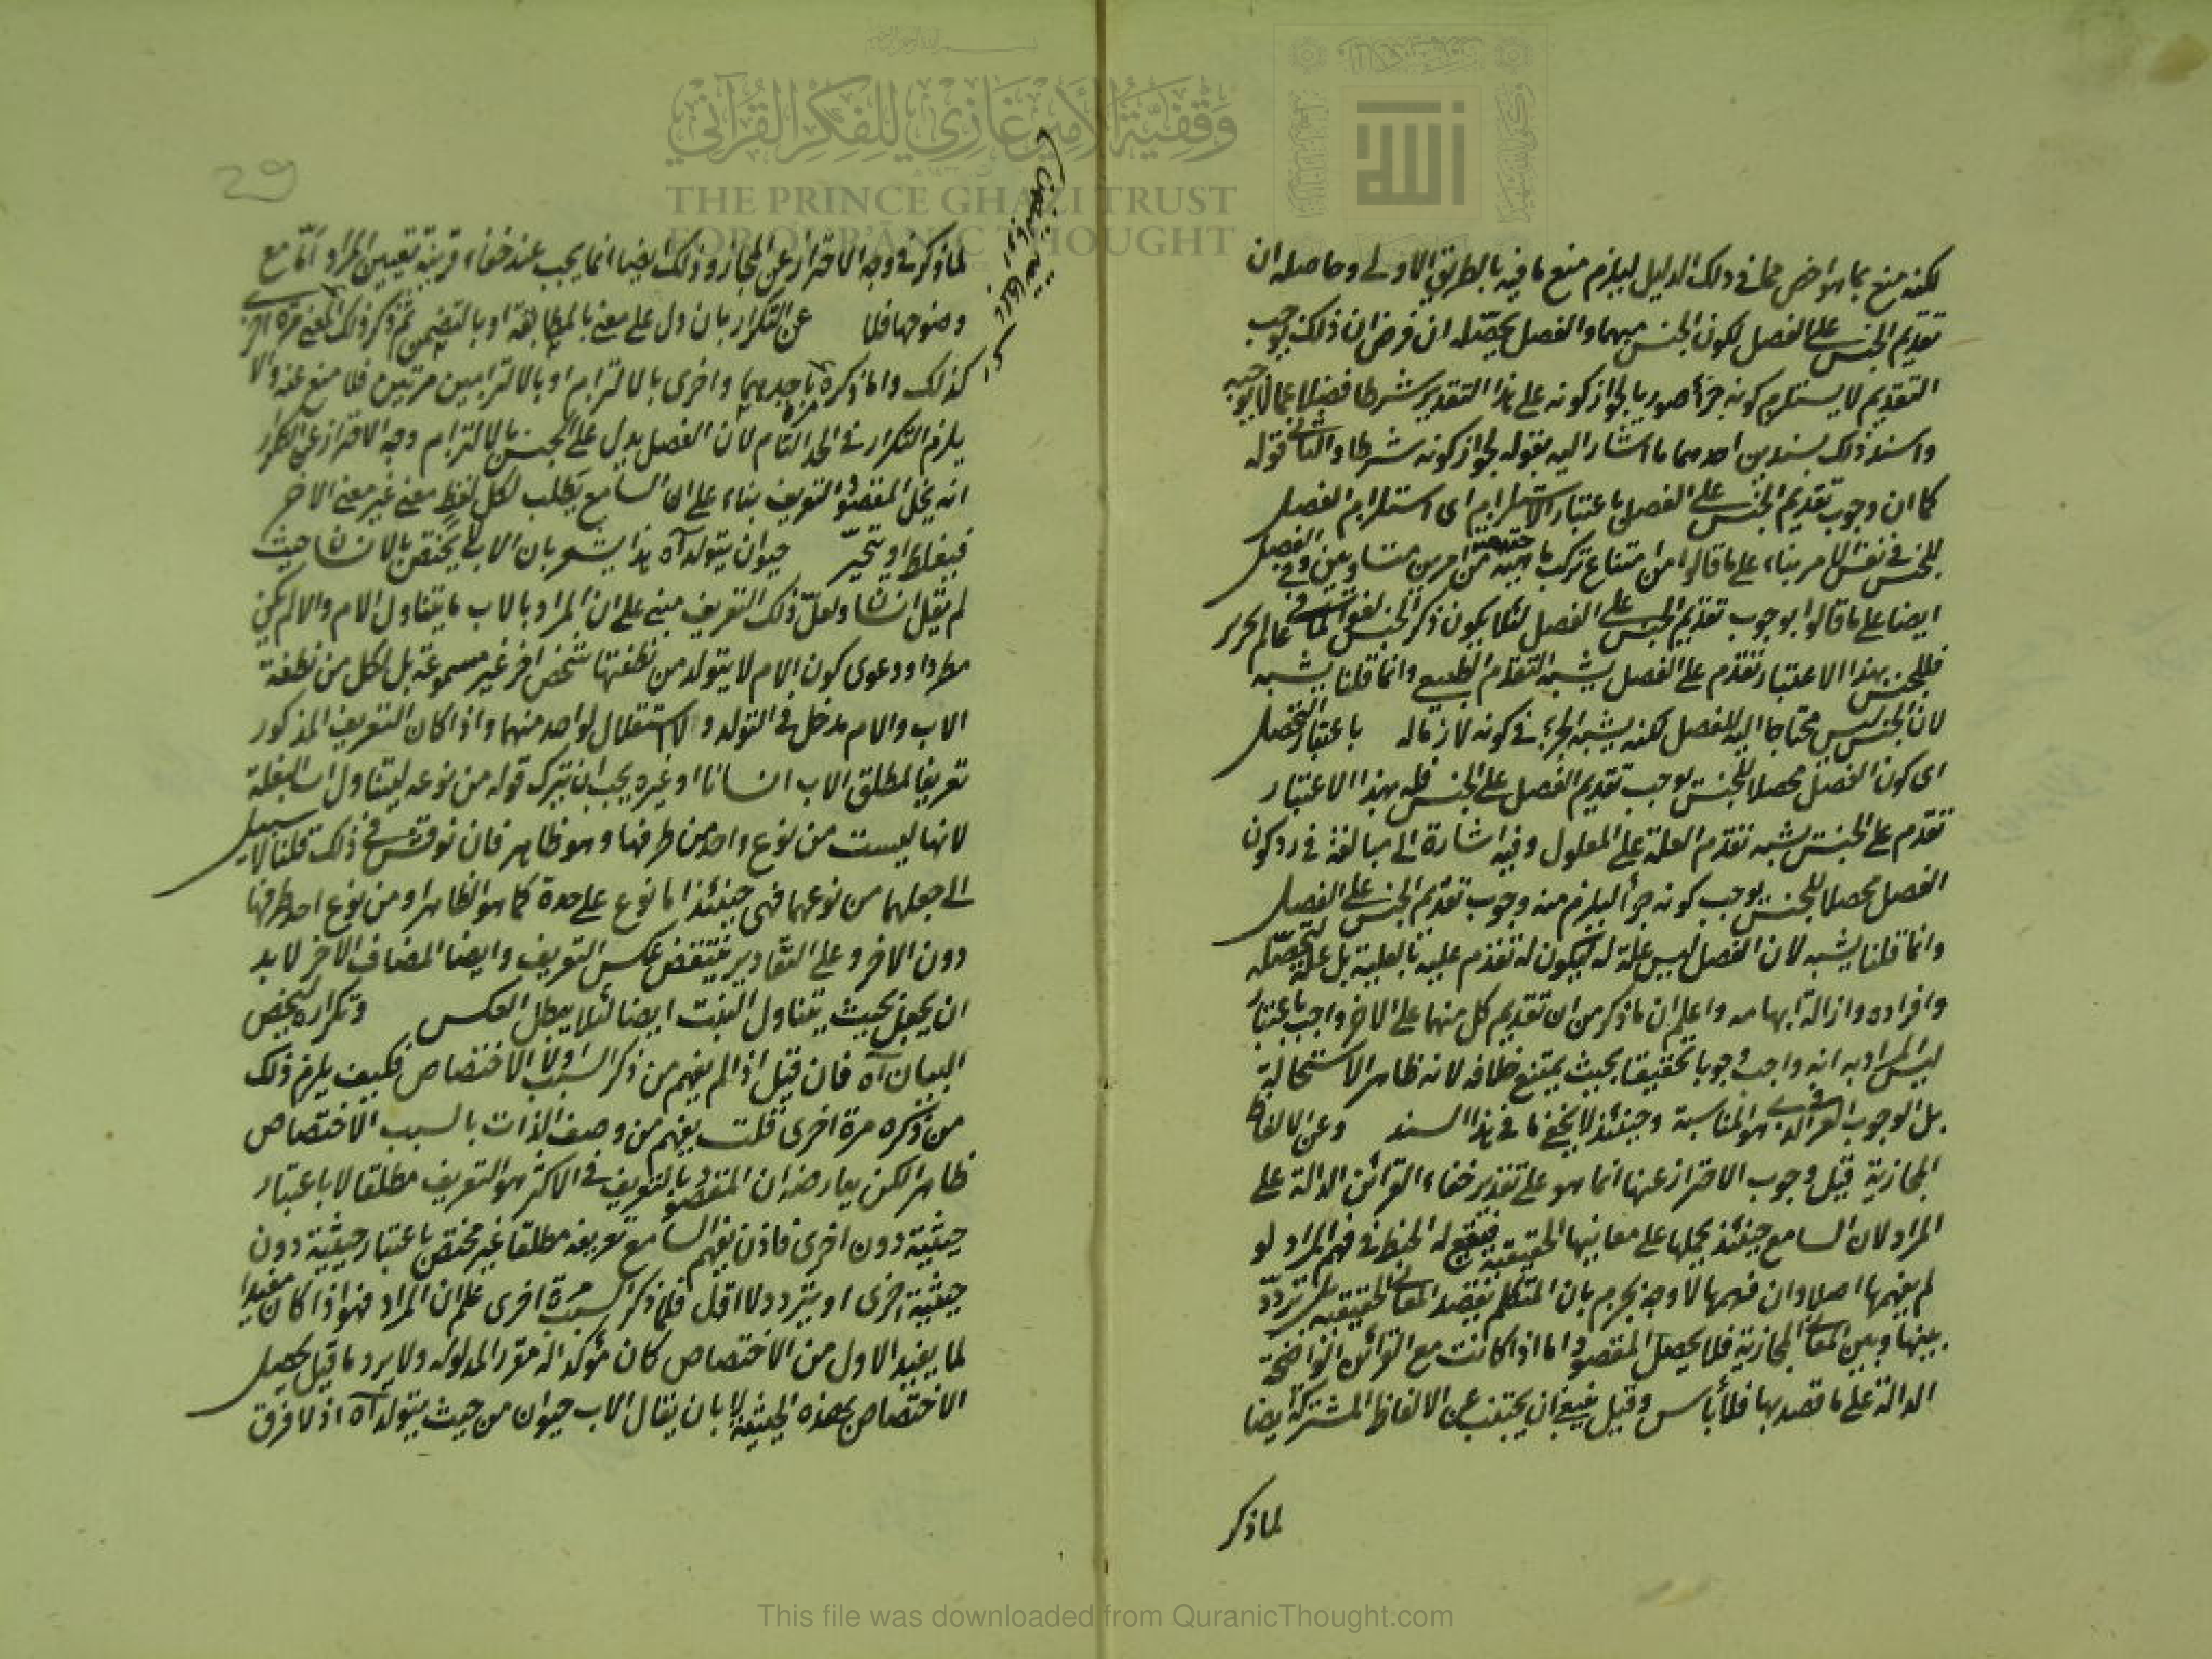 لكنه منع بما هو اخص مما في ذلك الدليل ليلزم منع ما فيه بالطريق الاولى وحاصله ان
تقديم الجنس على الفصل لكون الجنس مبهما والفصل يحصّله ان فرض ان ذلك يوجب
التقديم لا يستلزم كونه جزأ صوريا لجواز كونه على هذا التقدير شرطا فضلا عما لا يوجبه
واسند ذلك بسندين احدهما ما اشار اليه بقوله لجواز كونه شرطا والثاني قوله
كما ان وجوب تقديم الجنس على الفصل باعتبار الاستلزام اى استلزام الفصل
للجنس في نفس الامر بناء على ما قالوا من امتناع تركب ماهية حقيقية من امرين متساويين وفي الفصل
ايضا على ما قالوا بوجوب تقديم الجنس على الفصل لئلا يكون ذكر الجنس لغوا
فللجنس بهذا الاعتبار تقدم على الفصل يشبه التقدم الطبيعي وانما قلنا يشبه
لان الجنس ليس محتاجا اليه للفصل لكنه يشبه الجزء في كونه لازما له باعتبار التحصل
اى كون الفصل محصلا للجنس يوجب تقديم الفصل على الجنس فله بهذا الاعتبار
تقدم على الجنس يشبه تقدم العلة على المعلول وفيه اشارة الى مبالغة في رد كون
الفصل محصلا للجنس يوجب كونه جزأ ليلزم منه وجوب تقديم الجنس على الفصل
وانما قلنا يشبه لان الفصل ليس علة له ليكون له تقدم عليه بالعلية بل علة لتحصّله
وافراده وازالة ابهامه واعلم ان ما ذكر من ان تقديم كل منهما على الاخر واجب باعتبار
ليس المراد به انه واجب وجوبا تحقيقا بحيث يمتنع خلافه لانه ظاهر الاستحالة
بل الوجوب العرفي الذي هو المناسبة وحينئذ لا يخفى ما في هذا السند وعن الالفاظ
المجازية قيل وجوب الاحتراز عنها انما هو على تقدير خفاء القرائن الدالة على
المراد لان السامع حينئذ يحملها على معانيها الحقيقية فيقع له الخبط في فهم المراد لو
لم يفهمها اصلا وان فهمها لا وجه يجزم بان المتكلم يقصد المعاني الحقيقية بل يتردّد
بينها وبين المعاني المجازية فلا يحصل المقصود اما اذا كانت مع القرائن الواضحة
الدالة على ما قصد بها فلا بأس وقيل ينبغي ان يجتنب عن الالفاظ المشتركة ايضا
لما ذكر
29
لما ذكر في وجه الاحتراز عن المجاز وذلك ايضا انما يجب عند خفاء قرينة تعيين المراد امّا مع
وضوحها فلا عن التكرار بان دل على معنى بالمطابقة او بالتضمن ثم ذكر ذلك المعنى مرة اخرى
كذلك واما ذكره مرة باحديهما واخرى بالالتزام او بالالتزامين مرتين فلا منع عنه والا
يلزم التكرار في الحد التام لان الفصل يدل على الجنس بالالتزام وجه الاحتراز عن التكرار
انه يخل المقصود التعريف بناء على ان السامع يطلب لكل لفظ معنى غير معنى الاخر
فيغلط او يتحيّر حيوان يتولد آه هذا يشعر بان الاب لا يختص بالانسان حيث
لم يقل انسان ولعلّ ذلك التعريف مبني على ان المراد بالاب ما يتناول الام والا لم يكن
مطردا ودعوى كون الام لا يتولد من نطفتها شخص اخر غير مسموعة بل لكل من نطفة
الاب والام مدخل في التولد ولا استقلال لواحد منهما واذا كان التعريف المذكور
تعريفا لمطلق الاب انسانا او غيره يجب ان يترك قوله من نوعه ليتناول اب البغلة
لانها ليست من نوع واحد من طرفيها وهو ظاهر فان نوقش في ذلك قلنا لا سبيل
الى جعلهما من نوعهما فهي حينئذ اما نوع على حدة كما هو الظاهر او من نوع احد طرفيها
دون الاخر وعلى التقادير ينتقض عكس التعريف وايضا المضاف الاخر لا بد
ان يجعل بحيث يتناول البنت ايضا لئلا يبطل العكس وتكراره ليخص
البيان آه فان قيل اذا لم يفهم من ذكر السبب اولا الاختصاص فكيف يلزم ذلك
من ذكره مرة اخرى قلت يفهم من وصف الذات بالسبب الاختصاص
ظاهر الكن يعارضه ان المقصود بالتعريف في الاكثر هو التعريف مطلقا لا باعتبار
حيثية دون اخرى فاذن يفهم السامع تعريفه مطلقا غير مختص باعتبار حيثية دون
حيثية اخرى او يتردد لا اقل فلما ذكر السبب مرة اخرى علم ان المراد فهو اذا كان مفيدا
لما يفيد الاول من الاختصاص كان مؤكدا له مقرر المدلوله ولا يرد ما قيل يحصل
الاختصاص بهذه الحيثية لا بان يقال الاب حيوان من حيث يتولد آه اذ لا فرق